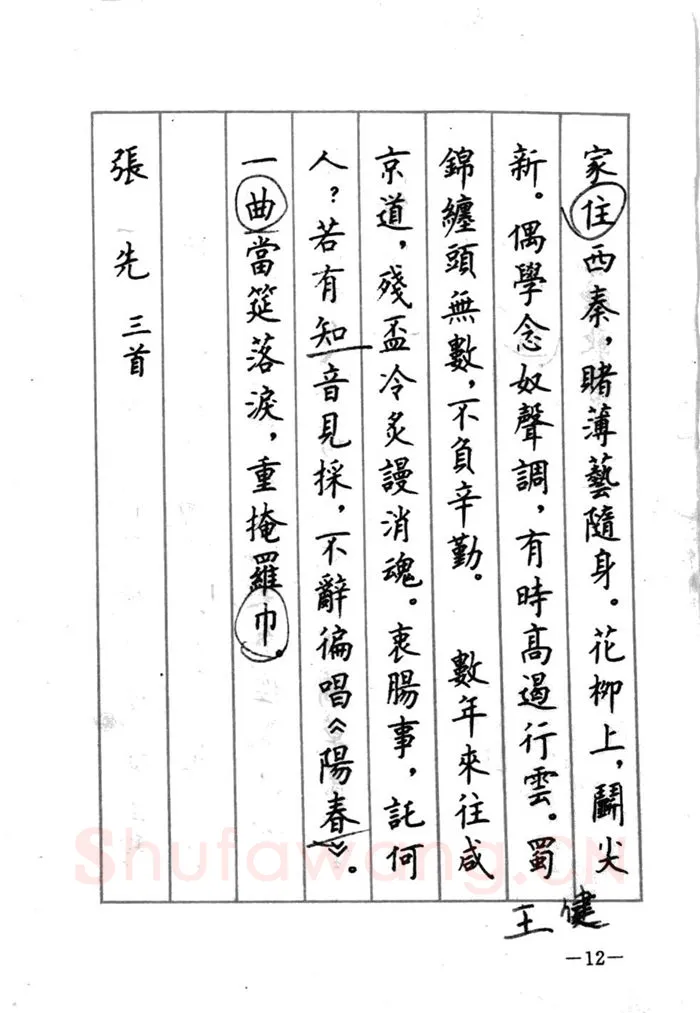 家住西秦，賭薄藝隨身。花柳上，鬭尖
新。偶學念奴聲調，有時高遏行雲。蜀
錦纏頭無數，不負辛勤。　數年來往咸
京道，殘盃冷炙謾消魂。衷腸事，託何
人？若有知音見採，不辭徧唱《陽春》。
一曲當筵落淚，重掩羅巾。
張先 三首
王健
—12—
Shufawang.CN